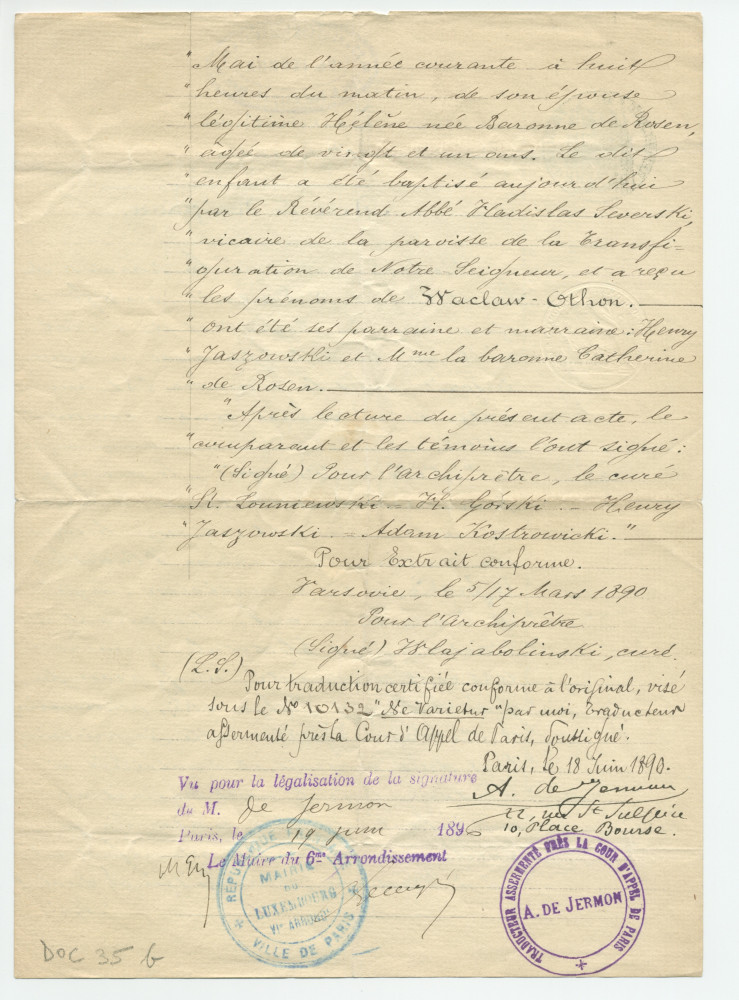 "Mai de l'année courante à huit
"heures du matin, de son épouse
"légitime Hélène née Baronne de Rosen,
"âgée de vingt et un ans. Le dit
"enfant a été baptisé aujourd'hui
"par le Révérend Abbé Vladislas Severski,
"vicaire de la paroisse de la Transfi-
"guration de Notre Seigneur, et a reçu
"les prénoms de Waclaw-Othon.
"ont été ses parraine et marraine: Henry
"Jaszowski et Mme la baronne Catherine
"de Rosen.
"Après lecture du présent acte, le
"comparant et les témoins l'ont signé:
"(Signé) Pour l'archiprêtre, le curé
"St. Louniewski = Górski = Henry
"Jaszowski = Adam Kostrowicki."
Pour Extrait conforme.
Varsovie, le 5/17 Mars 1890
Pour l'archiprêtre
(Signé) curé.
(L.S.)
Pour traduction certifiée conforme à l'original, visé
sous le No 10132 "Ne Varietur" par moi, Traducteur
assermenté près la Cour d'Appel de Paris, soussigné.
Paris, le 18 Juin 1890.
A. de Jermon
22, rue St Sulpice
10, Place Bourse.
Vu pour la légalisation de la signature
du M. de Jermon
Paris, le 19 juin 189
Le Maire du 6me Arrondissement
RÉPUBLIQUE
MAIRIE
DU
LUXEMBOURG
VIe ARRONDT
VILLE DE PARIS
TRADUCTEUR ASSERMENTÉ PRÈS LA COUR D'APPEL DE PARIS
A. DE JERMON
DOC 35 b